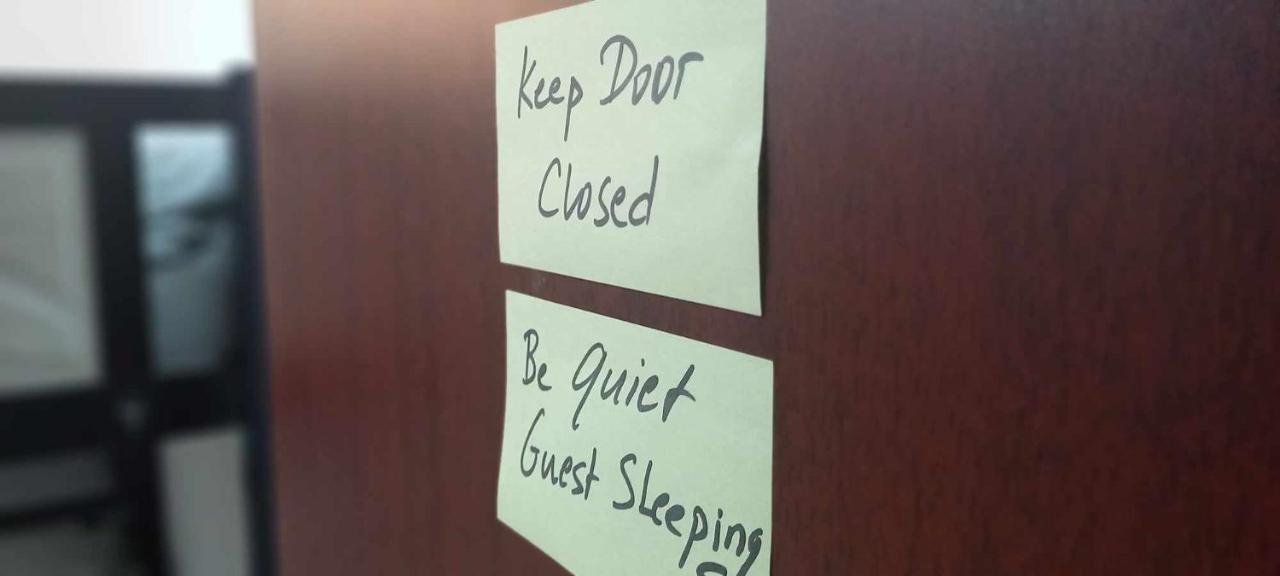 Keep Door
Closed
Be Quiet
Guest Sleeping